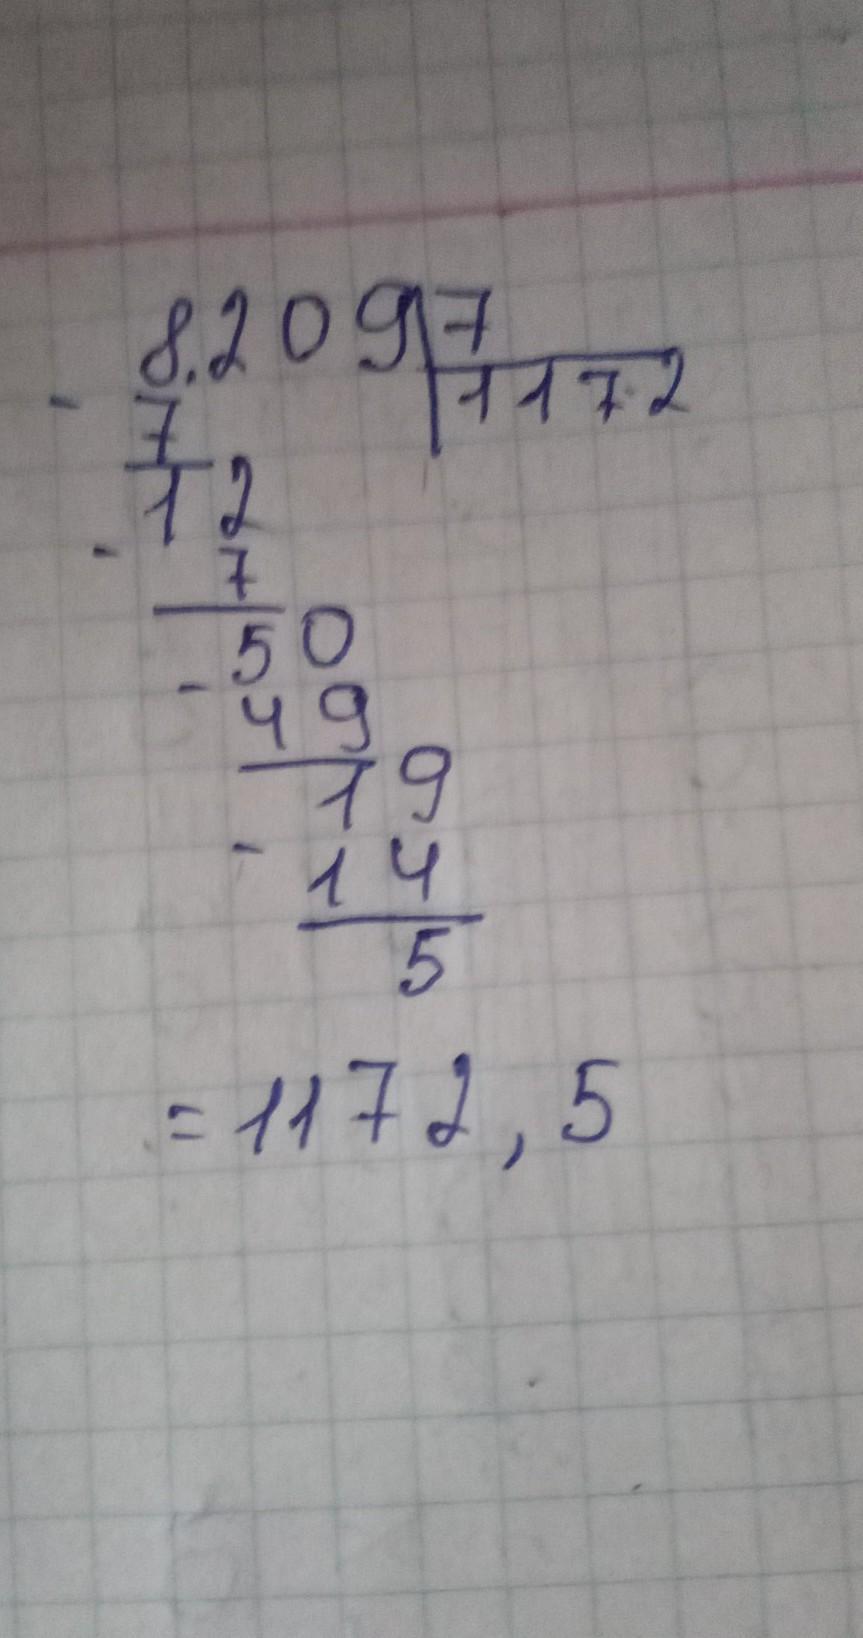 8.209 7
- 7 1172
12
- 7
50
- 49
19
- 14
5
=1172,5